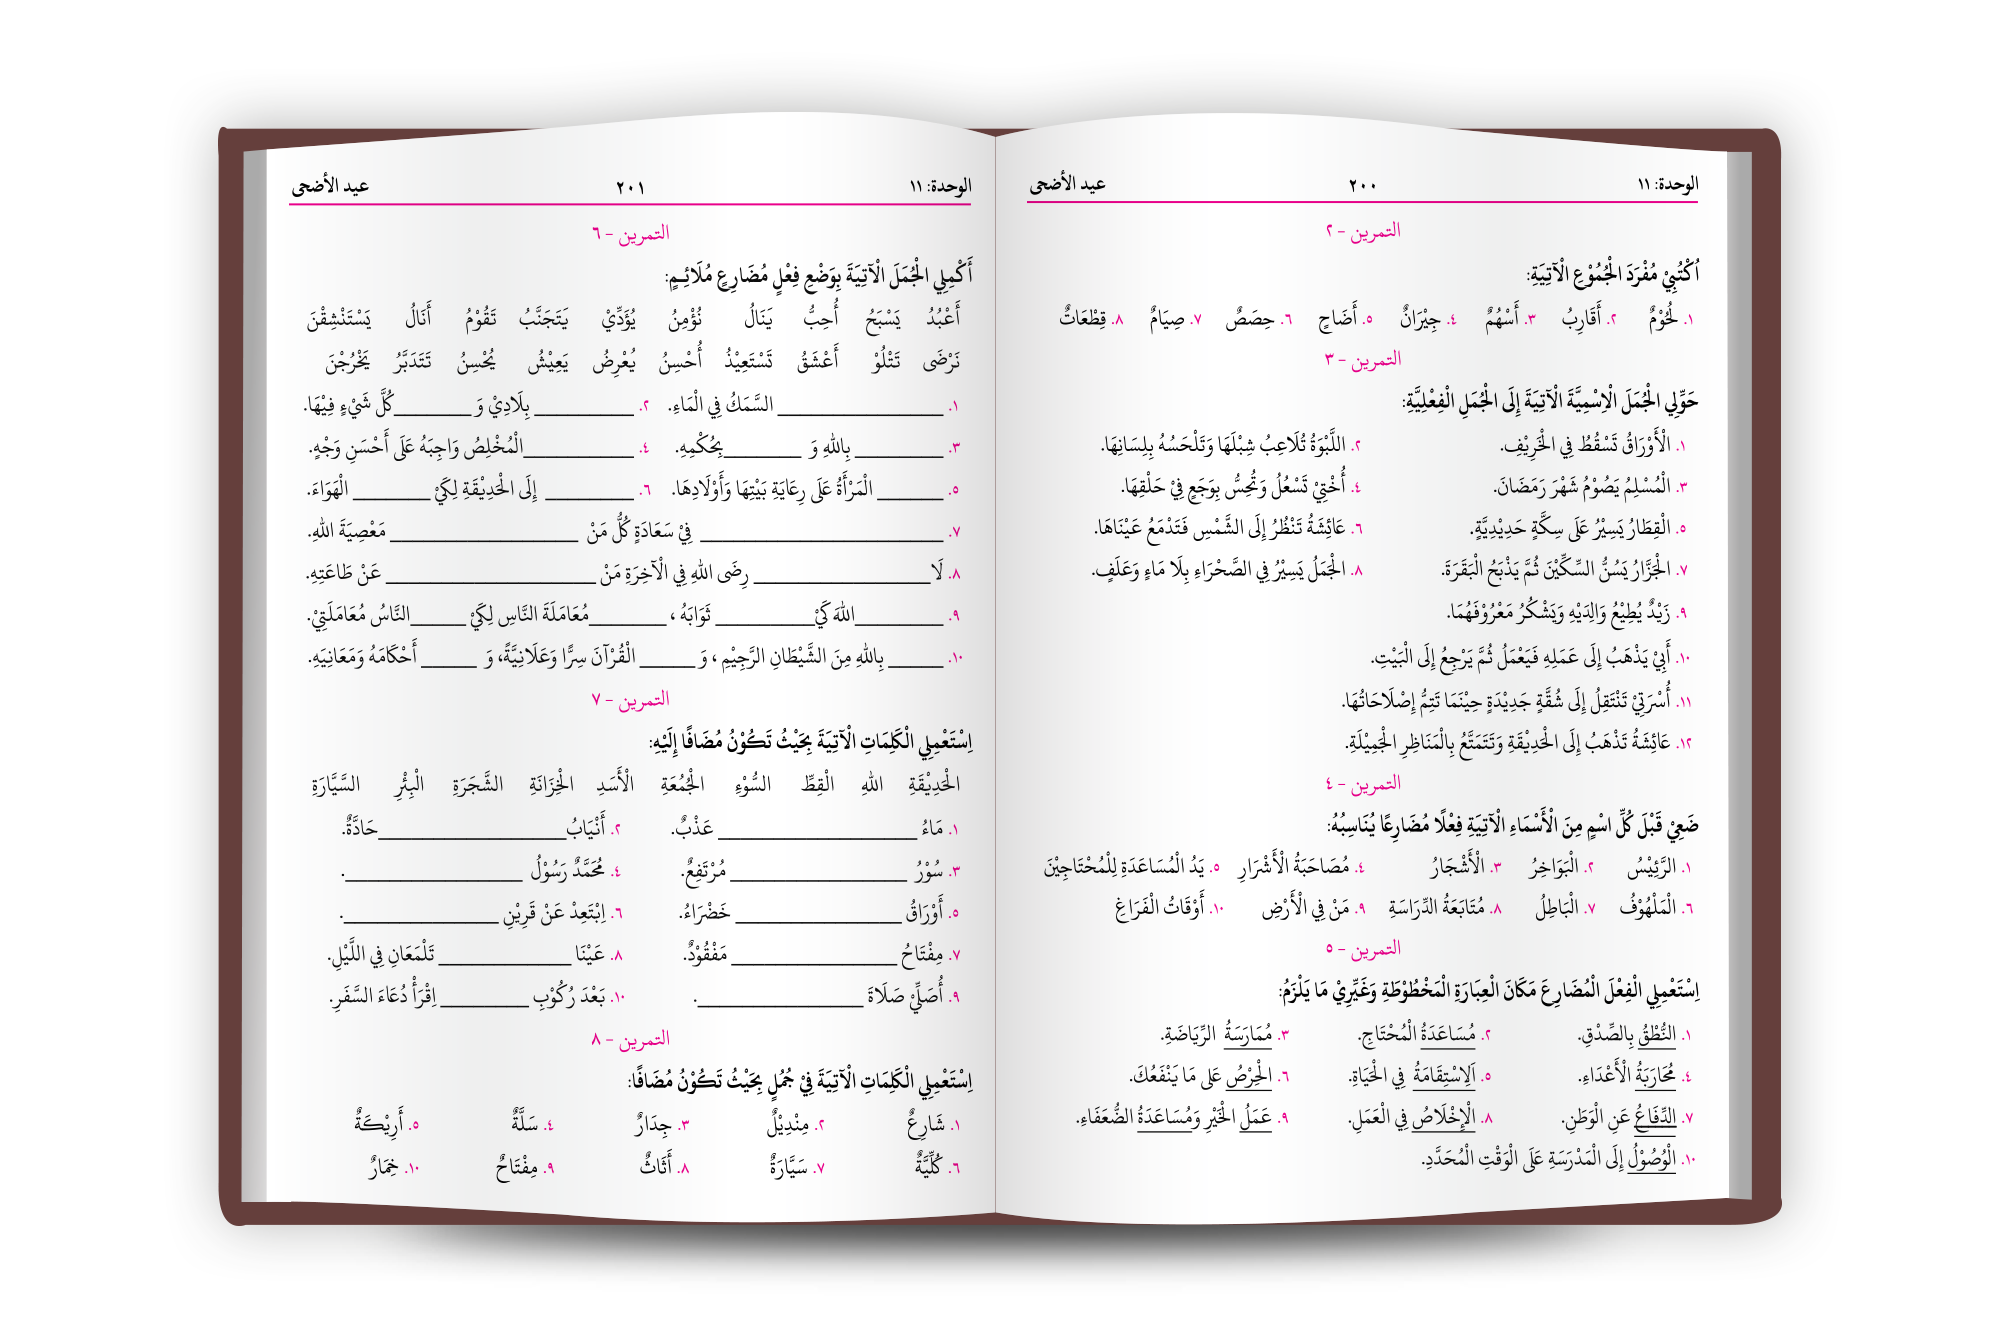 الوحدة: ١١ ٢٠٠ عيد الأضحى
التمرين - ٢
اُكْتُبِيْ مُفْرَدَ الْجُمُوْعِ الْآتِيَةِ:
١. لُحُوْمٌ ٢. أَقَارِبُ ٣. أَسْهُمٌ ٤. جِيْرَانٌ ٥. أَضَاحٍ ٦. حِصَصٌ ٧. صِيَامٌ ٨. قِطْعَاتٌ
التمرين - ٣
حَوِّلِي الْجُمَلَ الْاِسْمِيَّةَ الْآتِيَةَ إِلَى الْجُمَلِ الْفِعْلِيَّةِ:
١. الْأَوْرَاقُ تَسْقُطُ فِي الْخَرِيْفِ. ٢. اللَّبْوَةُ تُلَاعِبُ شِبْلَهَا وَتَلْحَسُهُ بِلِسَانِهَا.
٣. الْمُسْلِمُ يَصُوْمُ شَهْرَ رَمَضَانَ. ٤. أُخْتِيْ تَسْعُلُ وَتُحِسُّ بِوَجَعٍ فِيْ حَلْقِهَا.
٥. الْقِطَارُ يَسِيْرُ عَلَى سِكَّةٍ حَدِيْدِيَّةٍ. ٦. عَائِشَةُ تَنْظُرُ إِلَى الشَّمْسِ فَتَدْمَعُ عَيْنَاهَا.
٧. الْجَزَّارُ يَسُنُّ السِّكِّيْنَ ثُمَّ يَذْبَحُ الْبَقَرَةَ. ٨. الْجَمَلُ يَسِيْرُ فِي الصَّحْرَاءِ بِلَا مَاءٍ وَعَلَفٍ.
٩. زَيْدٌ يُطِيْعُ وَالِدَيْهِ وَيَشْكُرُ مَعْرُوْفَهُمَا.
١٠. أَبِيْ يَذْهَبُ إِلَى عَمَلِهِ فَيَعْمَلُ ثُمَّ يَرْجِعُ إِلَى الْبَيْتِ.
١١. أُسْرَتِيْ تَنْتَقِلُ إِلَى شُقَّةٍ جَدِيْدَةٍ حِيْنَمَا تَتِمُّ إِصْلَاحَاتُهَا.
١٢. عَائِشَةُ تَذْهَبُ إِلَى الْحَدِيْقَةِ وَتَتَمَتَّعُ بِالْمَنَاظِرِ الْجَمِيْلَةِ.
التمرين - ٤
ضَعِيْ قَبْلَ كُلِّ اسْمٍ مِنَ الْأَسْمَاءِ الْآتِيَةِ فِعْلًا مُضَارِعًا يُنَاسِبُهُ:
١. الرَّئِيْسُ ٢. الْبَوَاخِرُ ٣. الْأَشْجَارُ ٤. مُصَاحَبَةُ الْأَشْرَارِ ٥. يَدُ الْمُسَاعَدَةِ لِلْمُحْتَاجِيْنَ
٦. الْمَلْهُوْفُ ٧. الْبَاطِلُ ٨. مُتَابَعَةُ الدِّرَاسَةِ ٩. مَنْ فِي الْأَرْضِ ١٠. أَوْقَاتُ الْفَرَاغِ
التمرين - ٥
اِسْتَعْمِلِي الْفِعْلَ الْمُضَارِعَ مَكَانَ الْعِبَارَةِ الْمَخْطُوْطَةِ وَغَيِّرِيْ مَا يَلْزَمُ:
١. النُّطْقُ بِالصِّدْقِ. ٢. مُسَاعَدَةُ الْمُحْتَاجِ. ٣. مُمَارَسَةُ الرِّيَاضَةِ.
٤. مُحَارَبَةُ الْأَعْدَاءِ. ٥. اَلِاسْتِقَامَةُ فِي الْحَيَاةِ. ٦. الْحِرْصُ عَلى مَا يَنْفَعُكَ.
٧. الدِّفَاعُ عَنِ الْوَطَنِ. ٨. الْإِخْلَاصُ فِي الْعَمَلِ. ٩. عَمَلُ الْخَيْرِ وَمُسَاعَدَةُ الضُّعَفَاءِ.
١٠. الْوُصُوْلُ إِلَى الْمَدْرَسَةِ عَلَى الْوَقْتِ الْمُحَدَّدِ.
الوحدة: ١١ ٢٠١ عيد الأضحى
التمرين - ٦
أَكْمِلِي الْجُمَلَ الْآتِيَةَ بِوَضْعِ فِعْلٍ مُضَارِعٍ مُلَائِمٍ:
أَعْبُدُ يَسْبَحُ أُحِبُّ يَنَالُ نُؤْمِنُ يُؤَدِّيْ يَتَجَنَّبُ تَقُوْمُ أَنَالُ يَسْتَنْشِقْنَ
نَرْضَى تَتْلُوْ أَعْشَقُ تَسْتَعِيْذُ أُحْسِنُ يُعْرِضُ يَعِيْشُ يُحْسِنُ تَتَدَبَّرُ يَخْرُجْنَ
١. _______________ السَّمَكُ فِي الْمَاءِ. ٢. _________ بِلَادِيْ وَ _______كُلَّ شَيْءٍ فِيْهَا.
٣. ________ بِاللهِ وَ _______بِحُكْمِهِ. ٤. __________الْمُخْلِصُ وَاجِبَهُ عَلَى أَحْسَنِ وَجْهٍ.
٥. ______ الْمَرْأَةُ عَلَى رِعَايَةِ بَيْتِهَا وَأَوْلَادِهَا. ٦. ________ إِلَى الْحَدِيْقَةِ لِكَيْ _______ الْهَوَاءَ.
٧. ______________________ فِيْ سَعَادَةٍ كُلُّ مَنْ _________________ مَعْصِيَةَ اللهِ.
٨. لَا________________ رِضَى اللهِ فِي الْآخِرَةِ مَنْ ___________________ عَنْ طَاعَتِهِ.
٩. ________اللهَ كَيْ_________ ثَوَابَهُ ، _______مُعَامَلَةَ النَّاسِ لِكَيْ _____النَّاسُ مُعَامَلَتِيْ.
١٠. _____ بِاللهِ مِنَ الشَّيْطَانِ الرَّجِيْمِ ، وَ _____ الْقُرْآنَ سِرًّا وَعَلَانِيَّةً، وَ _____ أَحْكَامَهُ وَمَعَانِيَهِ.
التمرين - ٧
اِسْتَعْمِلِي الْكَلِمَاتِ الْآتِيَةَ بِحَيْثُ تَكُوْنُ مُضَافًا إِلَيْهِ:
الْحَدِيْقَةِ اللهِ الْقِطِّ السُّوْءِ الْجُمُعَةِ الْأَسَدِ الْخِزَانَةِ الشَّجَرَةِ الْبِئْرِ السَّيَّارَةِ
١. مَاءُ __________________ عَذْبٌ. ٢. أَنْيَابُ_________________حَادَّةٌ.
٣. سُوْرُ ________________ مُرْتَفِعٌ. ٤. مُحَمَّدٌ رَسُوْلُ ________________.
٥. أَوْرَاقُ _______________ خَضْرَاءُ. ٦. اِبْتَعِدْ عَنْ قَرِيْنِ ______________.
٧. مِفْتَاحُ _______________ مَفْقُوْدٌ. ٨. عَيْنَا ____________ تَلْمَعَانِ فِي اللَّيْلِ.
٩. أُصَلِّيْ صَلَاةَ _______________. ١٠. بَعْدَ رُكُوْبِ ________ اِقْرَأْ دُعَاءَ السَّفَرِ.
التمرين - ٨
اِسْتَعْمِلِي الْكَلِمَاتِ الْآتِيَةَ فِيْ جُمُلٍ بِحَيْثُ تَكُوْنُ مُضَافًا:
١. شَارِعٌ ٢. مِنْدِيْلٌ ٣. جِدَارٌ ٤. سَلَّةٌ ٥. أَرِيْكَةٌ
٦. كُلِّيَّةٌ ٧. سَيَّارَةٌ ٨. أَثَاثٌ ٩. مِفْتَاحٌ ١٠. خِمَارٌ